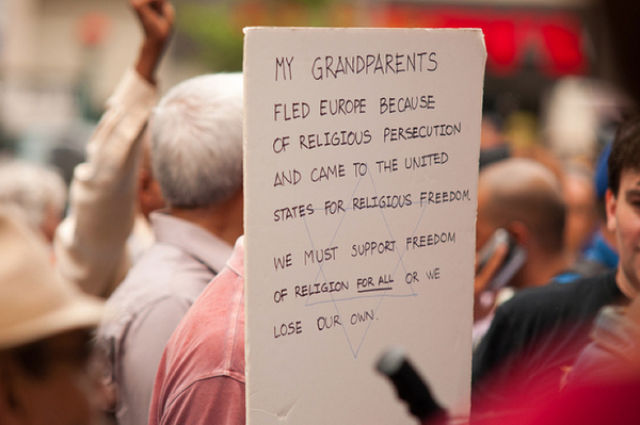 MY GRANDPARENTS
FLED EUROPE BECAUSE
OF RELIGIOUS PERSECUTION
AND CAME TO THE UNITED
STATES FOR RELIGIOUS FREEDOM.
WE MUST SUPPORT FREEDOM
OF RELIGION FOR ALL OR WE
LOSE OUR OWN.